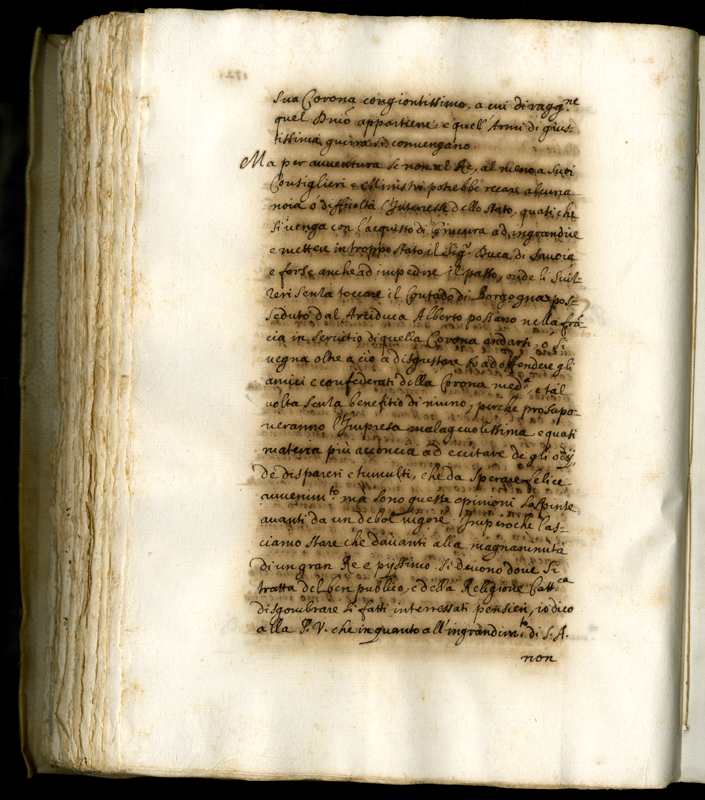 sua Corona congiontissimo, a cui di ragg.ne
quel D.nio appartiene, e quell'Armi di gius-
tissima guerra si convengano.
Ma per avventura se non al Re, al meno a suoi
Consiglieri e Ministri potrebbe recare alcuna
noia ò difficoltà l'Interesse dello stato, quasi che
si venga con l'acquisto di Ginevra ad ingrandire
e mettere in troppo stato il Sig.r Duca di Savoia
e forse anche ad impedire il passo, onde li Suiz-
zeri senza toccare il Contado di Borgogna pos-
seduto dal Arciduca Alberto possano nella frā
cia in servitio di quella Corona andarti, ò si
vegna oltre a ciò à disgustare et ad offendere gli
amici e confederati della Corona med.a, e tal
volta senza benefitio di niuno, perche prosupo-
neranno l'Impresa malagevolissima e quasi
materia più acconcia ad eccitare de gli odij,
de dispareri e tumulti, che da sperare felice
avvenim.to ma sono queste opinioni sospinte
avanti da un debol vigore. Imperoche las-
ciamo stare che davanti alla magnanimità
di un gran Re e pijssimo si devono dove si
tratta del ben publico, e della Religione Catt.ca
disgombrare si fatti interressati pensieri, io dico
alla P. V. che in quanto all'ingrandim.to di S. A.
non